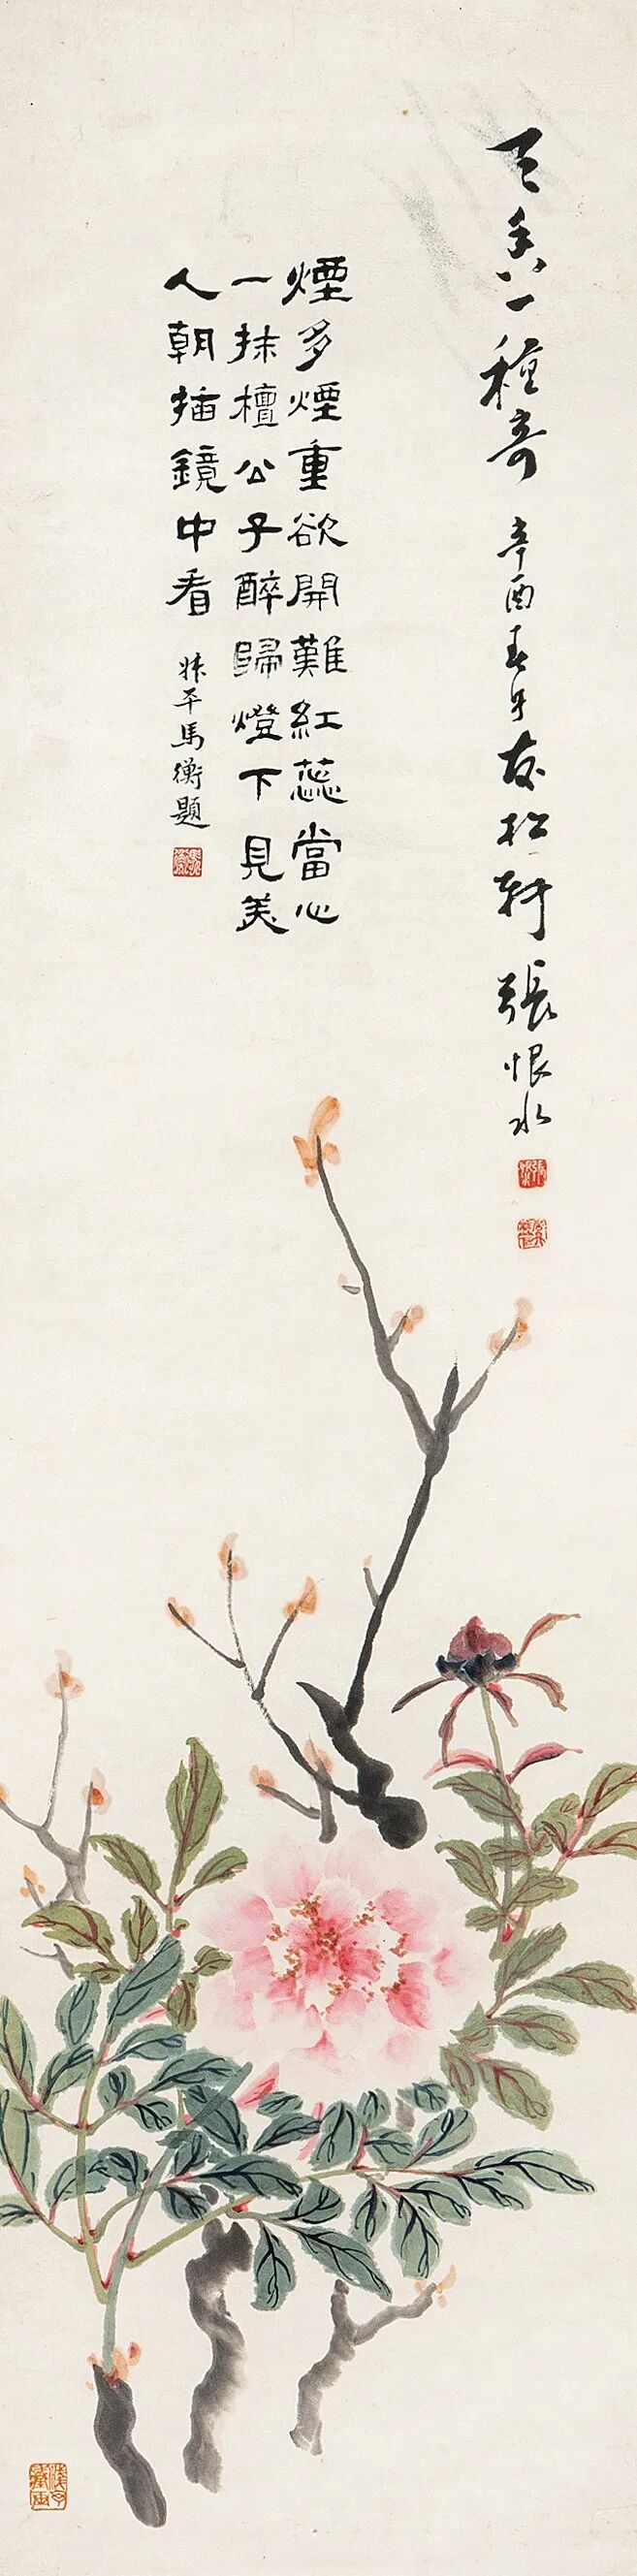 天香一種奇 辛酉春友松軒張恨水
煙多煙重欲開難紅蕊當心
一抹檀公子醉歸燈下見美
人朝插鏡中看 叔平馬衡題
馬衡